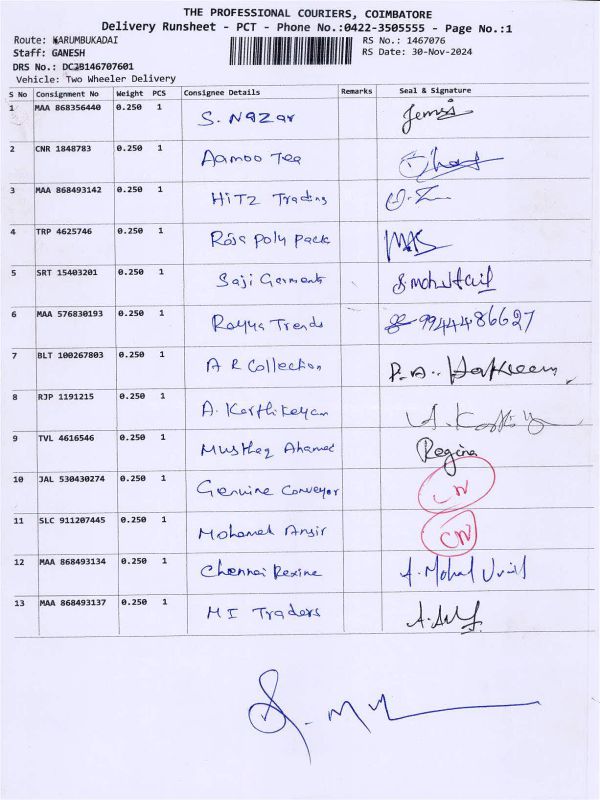 THE PROFESSIONAL COURIERS, COIMBATORE
Delivery Runsheet - PCT - Phone No.:0422-3505555 - Page No.:1
Route: KARUMBUKADAI RS No.: 1467076
Staff: GANESH RS Date: 30-Nov-2024
DRS No.: DC2B146707601
Vehicle: Two Wheeler Delivery
S No Consignment No Weight PCS Consignee Details Remarks Seal & Signature
1 MAA 868356440 0.250 1 S. Nazar
2 CNR 1848783 0.250 1 Aamoo Tea
3 MAA 868493142 0.250 1 HiTZ Trading
4 TRP 4625746 0.250 1 Roja Poly pack
5 SRT 15403201 0.250 1 Saji Garments
6 MAA 576830193 0.250 1 Rayya Trends 9944486627
7 BLT 100267803 0.250 1 A R Collection P.A. Hakkeem
8 RJP 1191215 0.250 1 A. Karthikeyan
9 TVL 4616546 0.250 1 Musthaq Ahamed Regina
10 JAL 530430274 0.250 1 Genuine Conveyor CN
11 SLC 911207445 0.250 1 Mohamed Ansir CN
12 MAA 868493134 0.250 1 Chennai Rexine
13 MAA 868493137 0.250 1 M I Traders